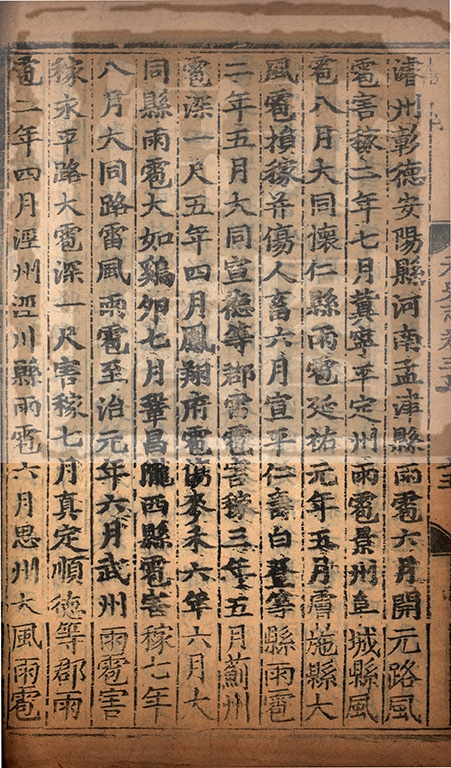 濬州彰德安陽縣河南孟津縣雨雹六月開元路風
雹害稼二年七月冀寧平定州雨雹景州阜城縣風
雹八月大同懷仁縣雨雹延祐元年五月膚施縣大
風雹損稼并傷人畜六月宣平仁壽白登等縣雨雹
二年五月大同宣德等郡雷雹害稼三年五月薊州
雹深一尺五年四月鳳翔府雹傷麥禾六年六月大
同縣雨雹大如雞卵七月鞏昌隴西縣雹害稼七年
八月大同路雷風雨雹至治元年六月武州雨雹害
稼永平路大雹深一尺害稼七月真定順德等郡雨
雹二年四月涇州涇川縣雨雹六月思州大風雨雹